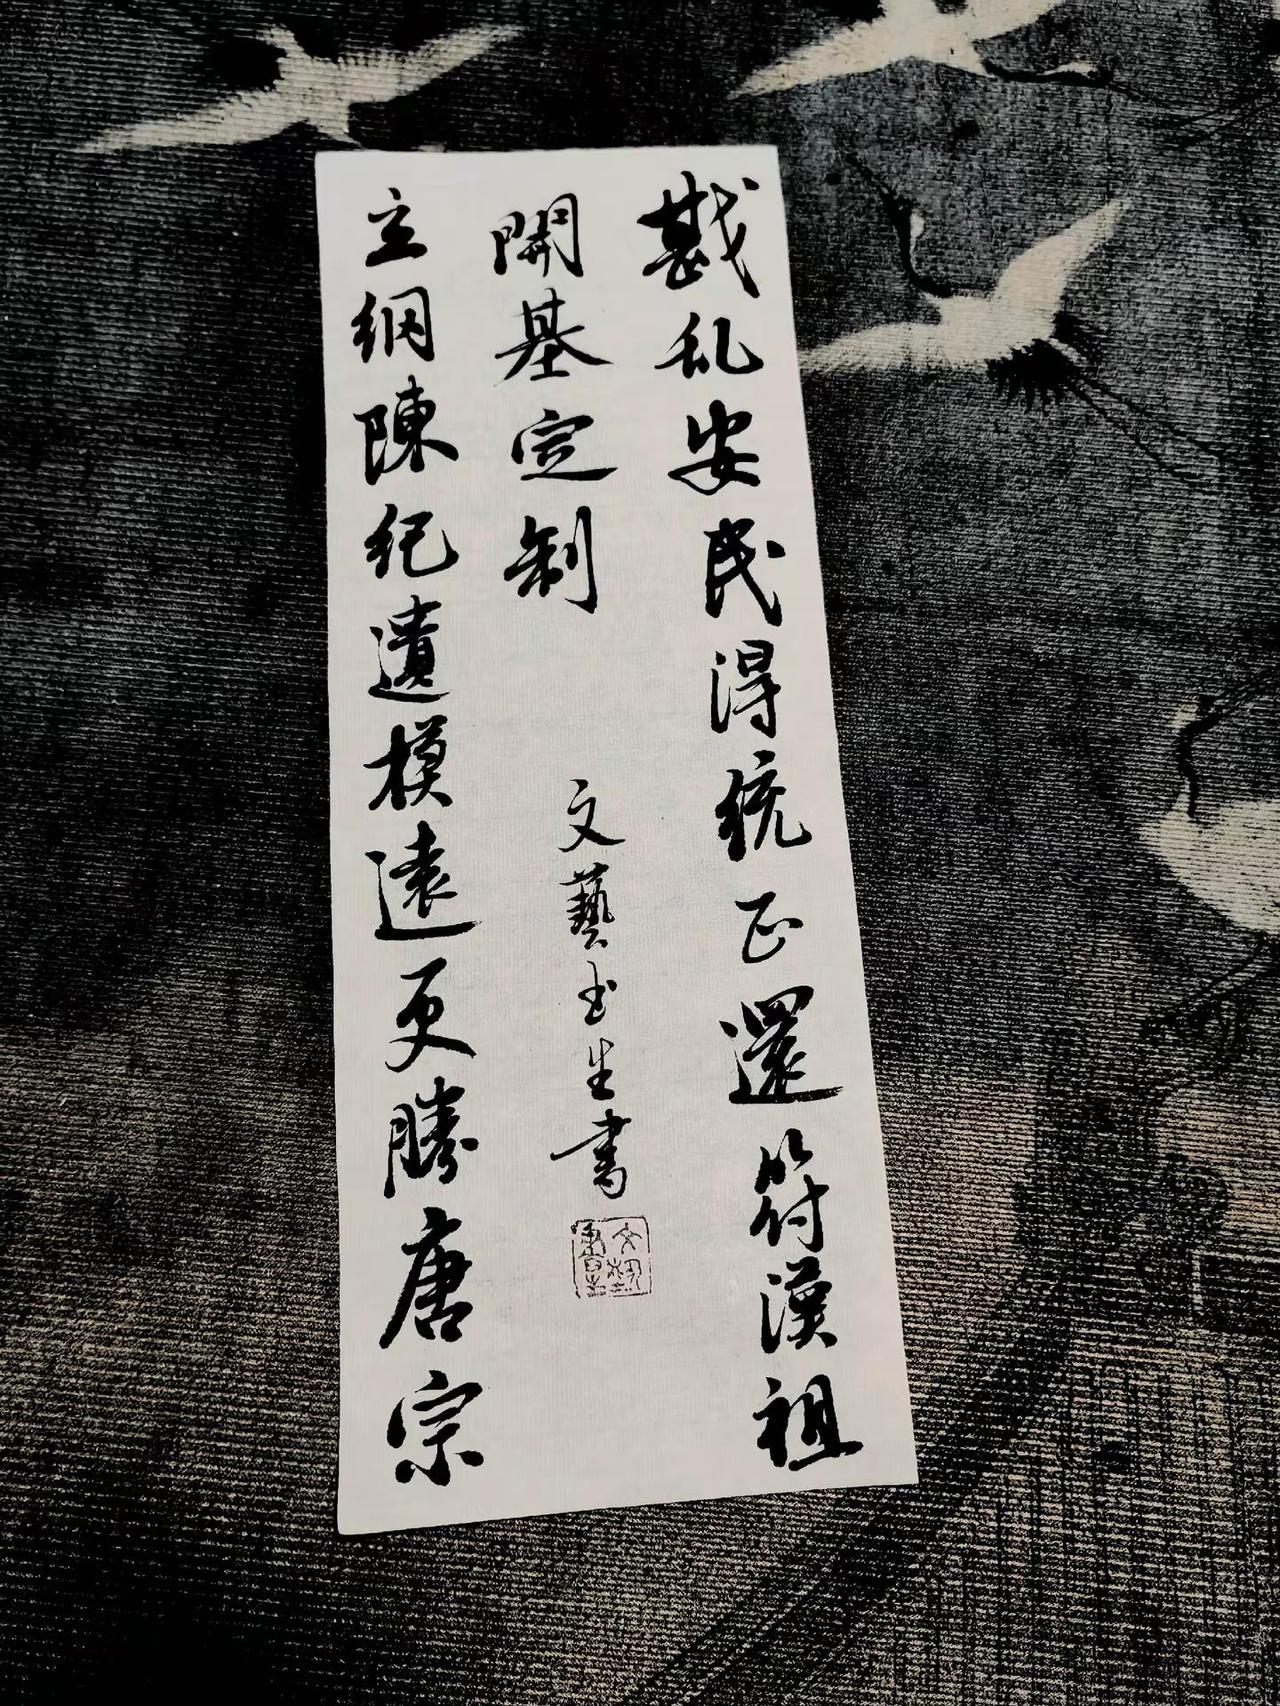 戡乱安民得统正還符漢祖
開基定制
立綱陳纪遺模遠更勝唐宗
文藝书生書